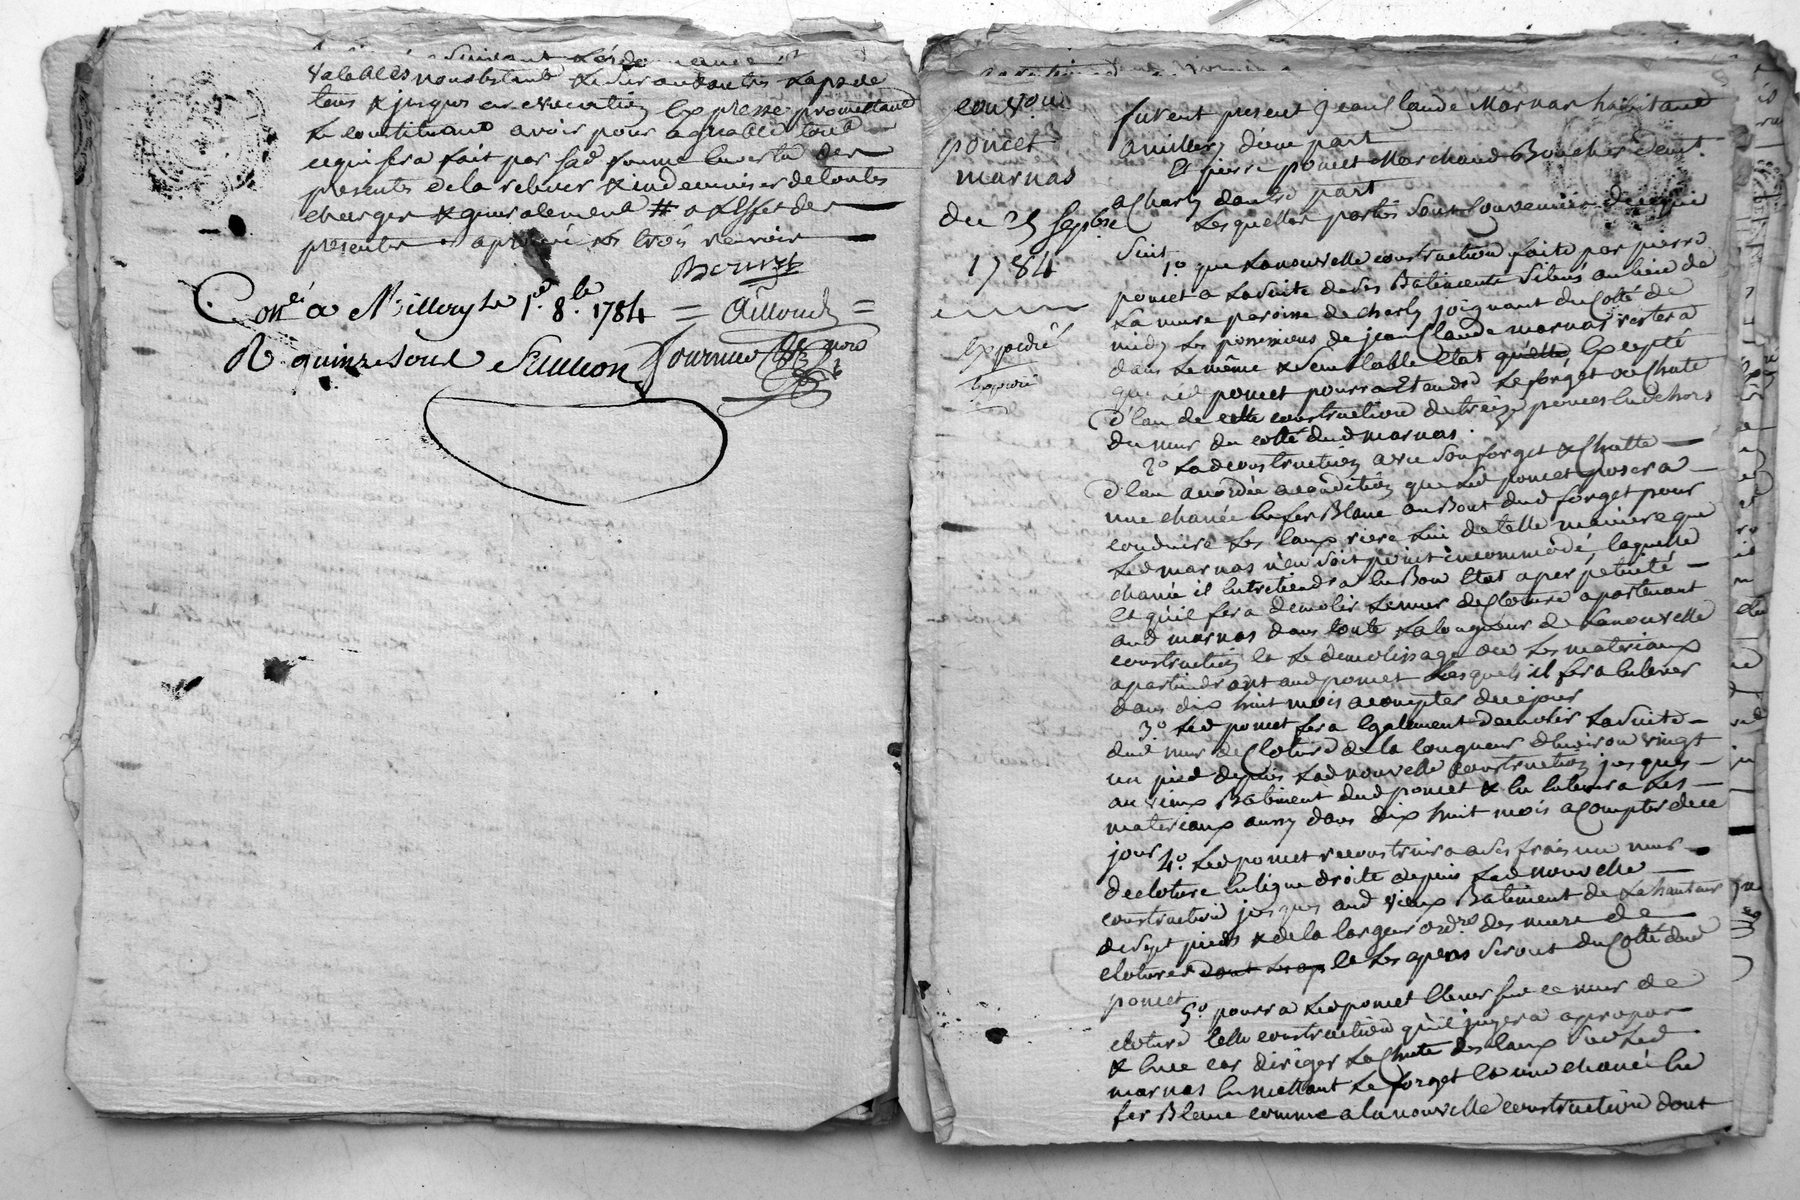 suivant les
valables nonobstant & sur autres &
tous & jusques en execution expresse promettant
le constituant avoir pour agreable tout
ce qui sera fait par lad femme en vertu des
presentes & de la relever & indemniser de toutes
charges & generalement # a l'effet des
presentes approuvé les trois renvois
Con.lé a Millery le 1.er 8.bre 1784 =
R quinze sous
conv.on
poncet
marnas
du 25 sepbre
1784
Expedié
furent present s jean Claude Marnas habitant
a millery d'une part
Et pierre poncet Marchand Boucher demt.
a Charly dautre part
Lesquelles parties sont convenues de ce qui
suit
1.º que la nouvelle construction faite par pierre
poncet a la suite de ses Batiments situés au lieu de
la mure paroisse de charly joignant du Coté de
midy les possessions de jean Claude marnas restera
dans le même & semblable Etat qu'elle, Excepté
que led poncet pourra Etandre le forget ou Chute
d'Eau de cette construction de treize pouces En dehors
du mur du cotté dud marnas.
2.º La construction avec son forget & Chutte
d'Eau accordée a condition que led poncet posera
une chanée En fer Blanc au Bout dud forget pour
conduire les Eaux riere lui de telle maniere que
led marnas n'en soit point incommodé, laquelle
chanée il Entretiendra En Bon Etat a perpetuité
Et qu'il fera demolir le mur de Cloture apartenant
aud marnas dans toute la longueur de la nouvelle
construction et le demolissage ou les materiaux
apartiendront aud poncet Lesquels il fera Enlever
dans dix huit mois a compter de ce jour
3.º Led poncet fera Egalement demolir la suite
dud mur de Cloture de la longueur d'Environ vingt
un pied depuis lad nouvelle construction jusques
au vieux Batiment dud poncet & En Enlevera les
materiaux aussy dans dix huit mois a Compter de ce
jour 4.º Led poncet reconstruira a ses frais un mur
de cloture En ligne droite depuis lad nouvelle
construction jusques aud vieux Batiment de la hauteur
de sept pieds & de la largeur ord.re des murs de
clotures dont les ap et les apens seront du Coté dud
poncet
5.º pourra led poncet Elever sur ce mur de
cloture telle construction qu'il jugera a propos
& En ce cas diriger la Chute des Eaux sur led
marnas En mettant le forget Et une chanée En
fer Blanc comme a la nouvelle construction dont